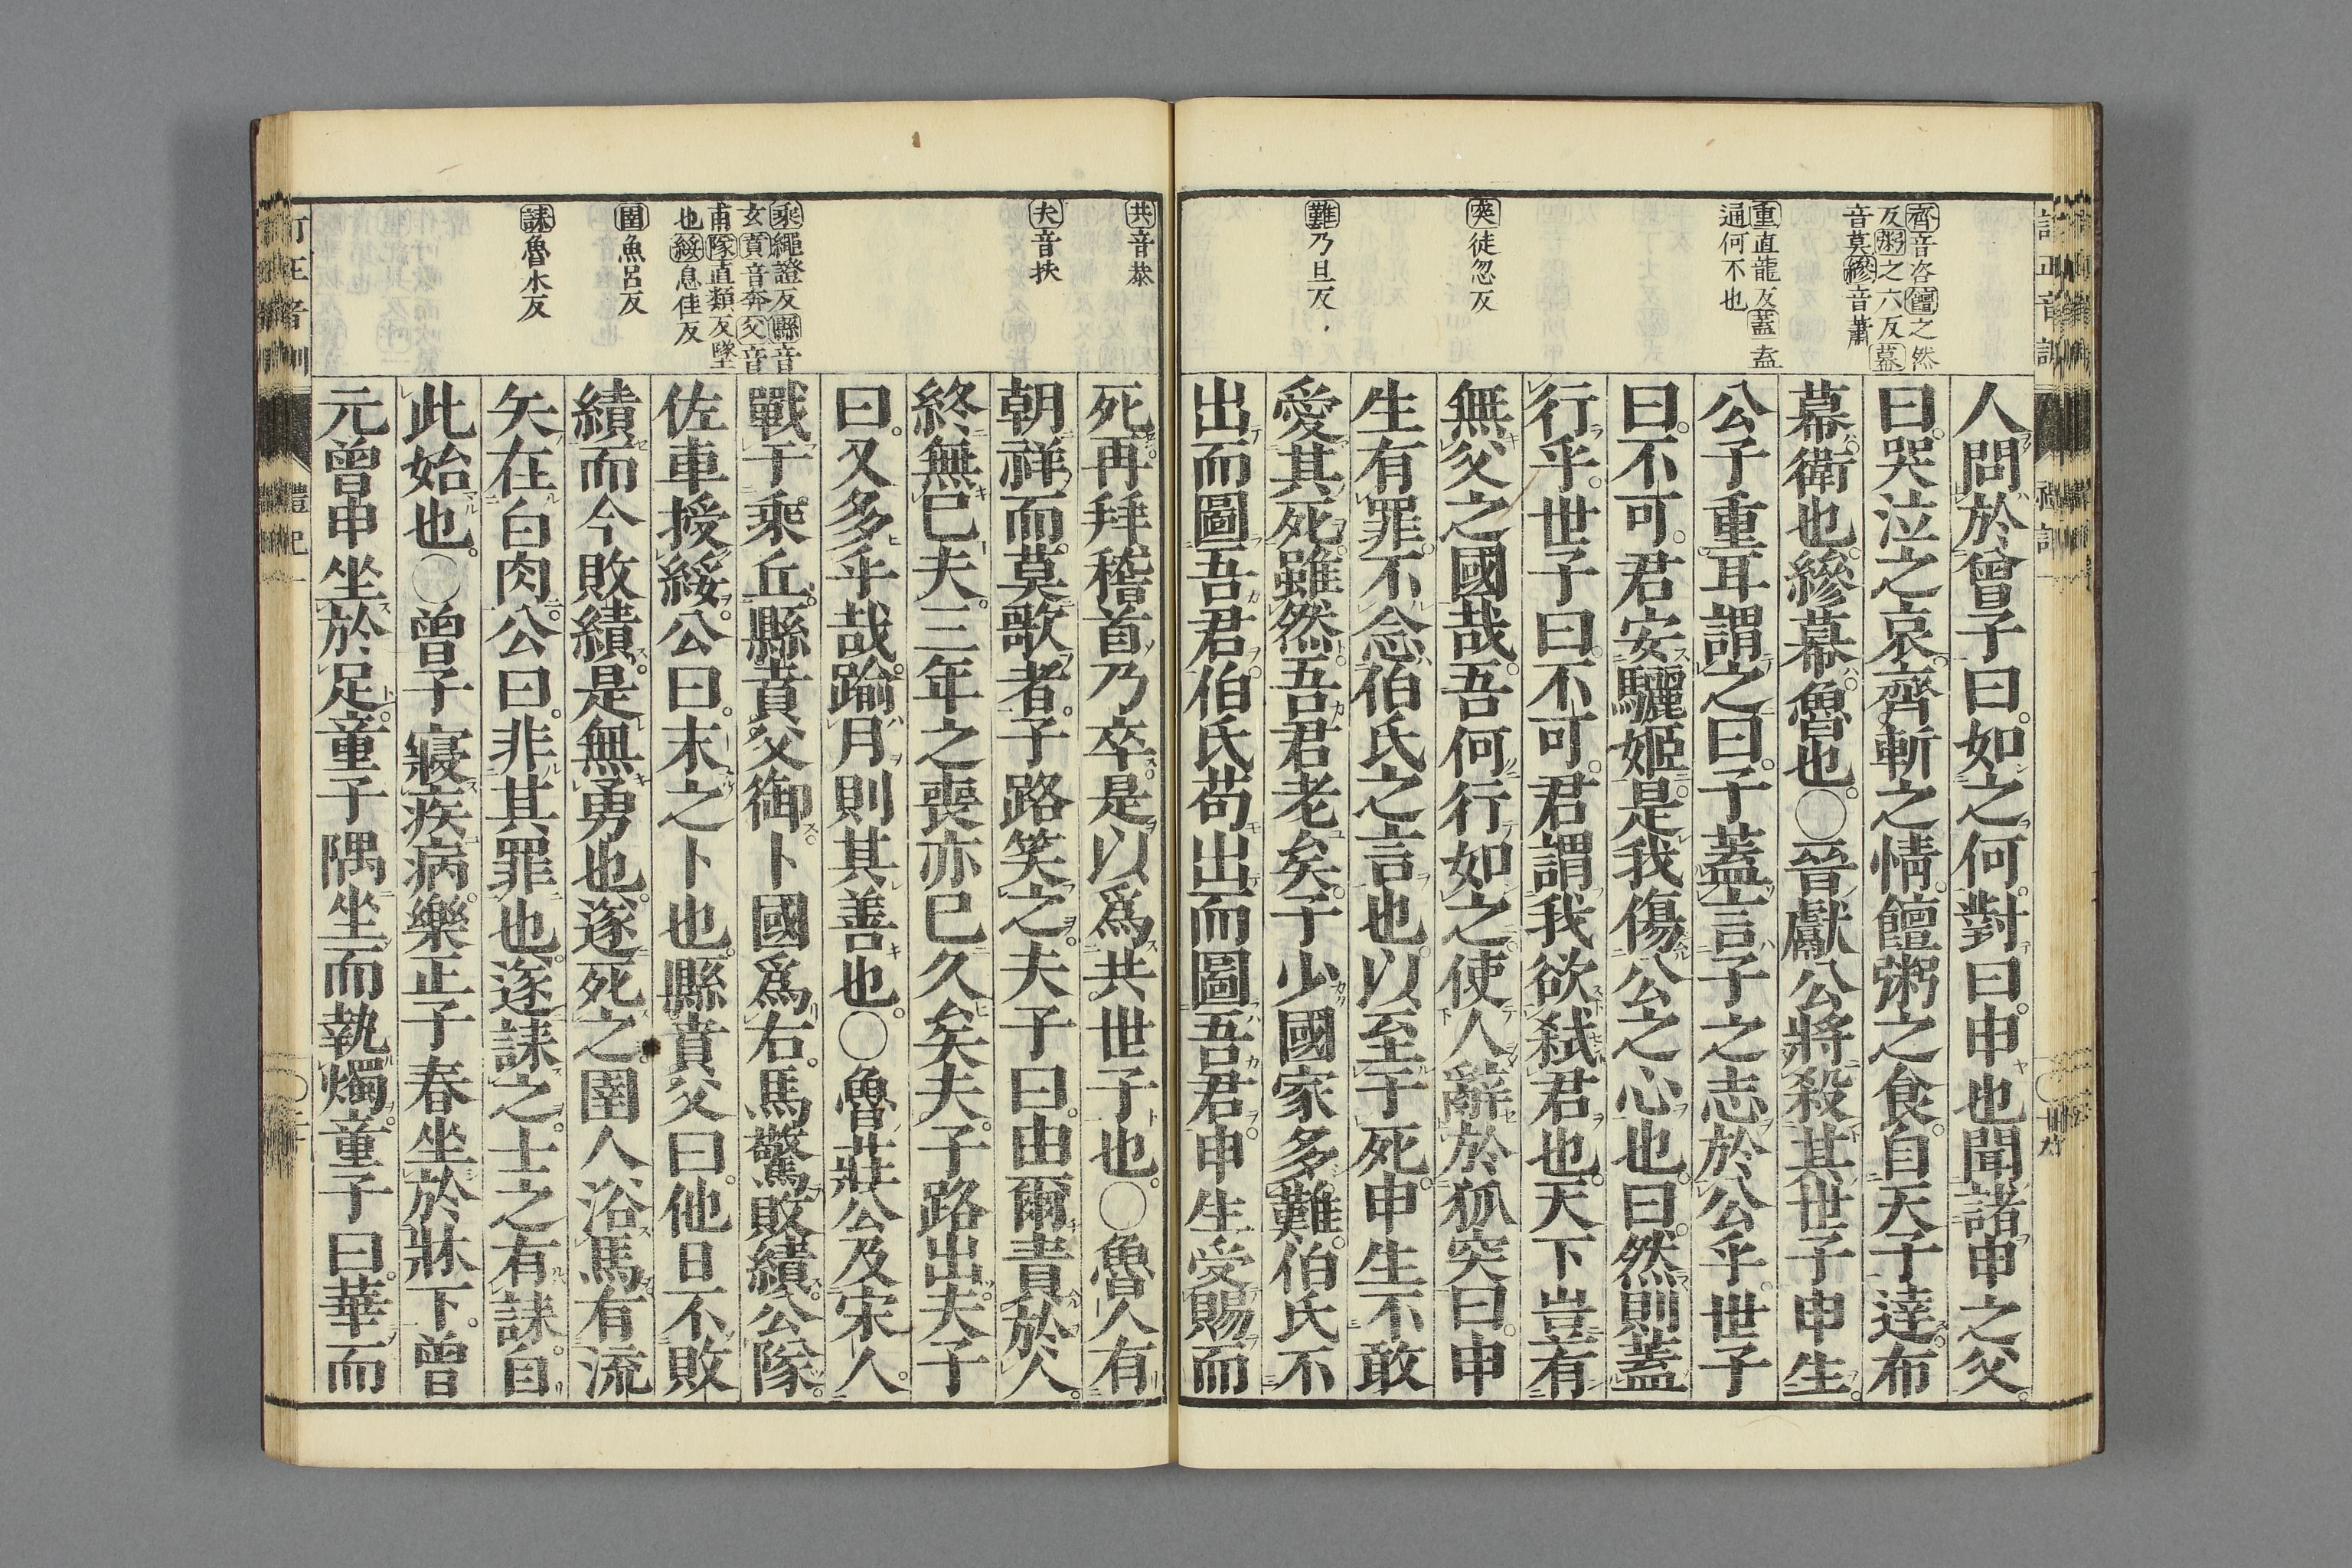 齊音咨饘之然
反粥之六反幕
音莫縿音蕭
重直龍反蓋盍
通何不也
突徒忽反
難乃旦反
人問於曾子曰如之何對曰申也聞諸申之父
曰哭泣之哀齊斬之情饘粥之食自天子達布
幕衞也縿幕魯也○晉獻公將殺其世子申生
公子重耳謂之曰子蓋言子之志於公乎世子
曰不可君安驪姬是我傷公之心也曰然則蓋
行乎世子曰不可君謂我欲弑君也天下豈有
無父之國哉吾何行如之使人辭於狐突曰申
生有罪不念伯氏之言也以至于死申生不敢
愛其死雖然吾君老矣子少國家多難伯氏不
出而圖吾君伯氏苟出而圖吾君申生受賜而
共音恭
夫音扶
乘繩證反縣音
玄賁音奔父音
甫隊直類反墜
也綏息佳反
圉魚呂反
誄魯水反
死再拜稽首乃卒是以爲共世子也○魯人有
朝祥而莫歌者子路笑之夫子曰由爾責於人
終無已夫三年之喪亦已久矣夫子路出夫子
曰又多乎哉踰月則其善也○魯莊公及宋人
戰于乘丘縣賁父御卜國爲右馬驚敗績公隊
佐車授綏公曰末之卜也縣賁父曰他日不敗
績而今敗績是無勇也遂死之圉人浴馬有流
矢在白肉公曰非其罪也遂誄之士之有誄自
此始也○曾子寢疾病樂正子春坐於牀下曾
元曾申坐於足童子隅坐而執燭童子曰華而